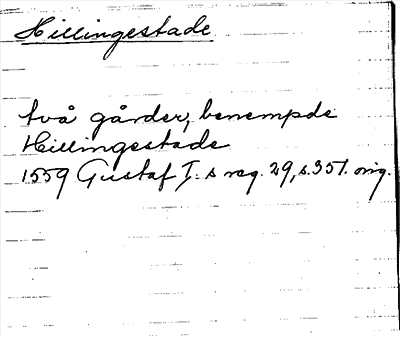 Hillingestade
två gårder, benempde
Hillingestade
1559 Gustaf I:s reg. 29, s. 351. orig.